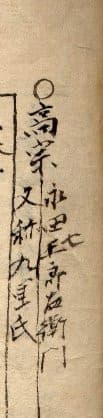 ○高宗
永田七郎右衛門
又称九里氏